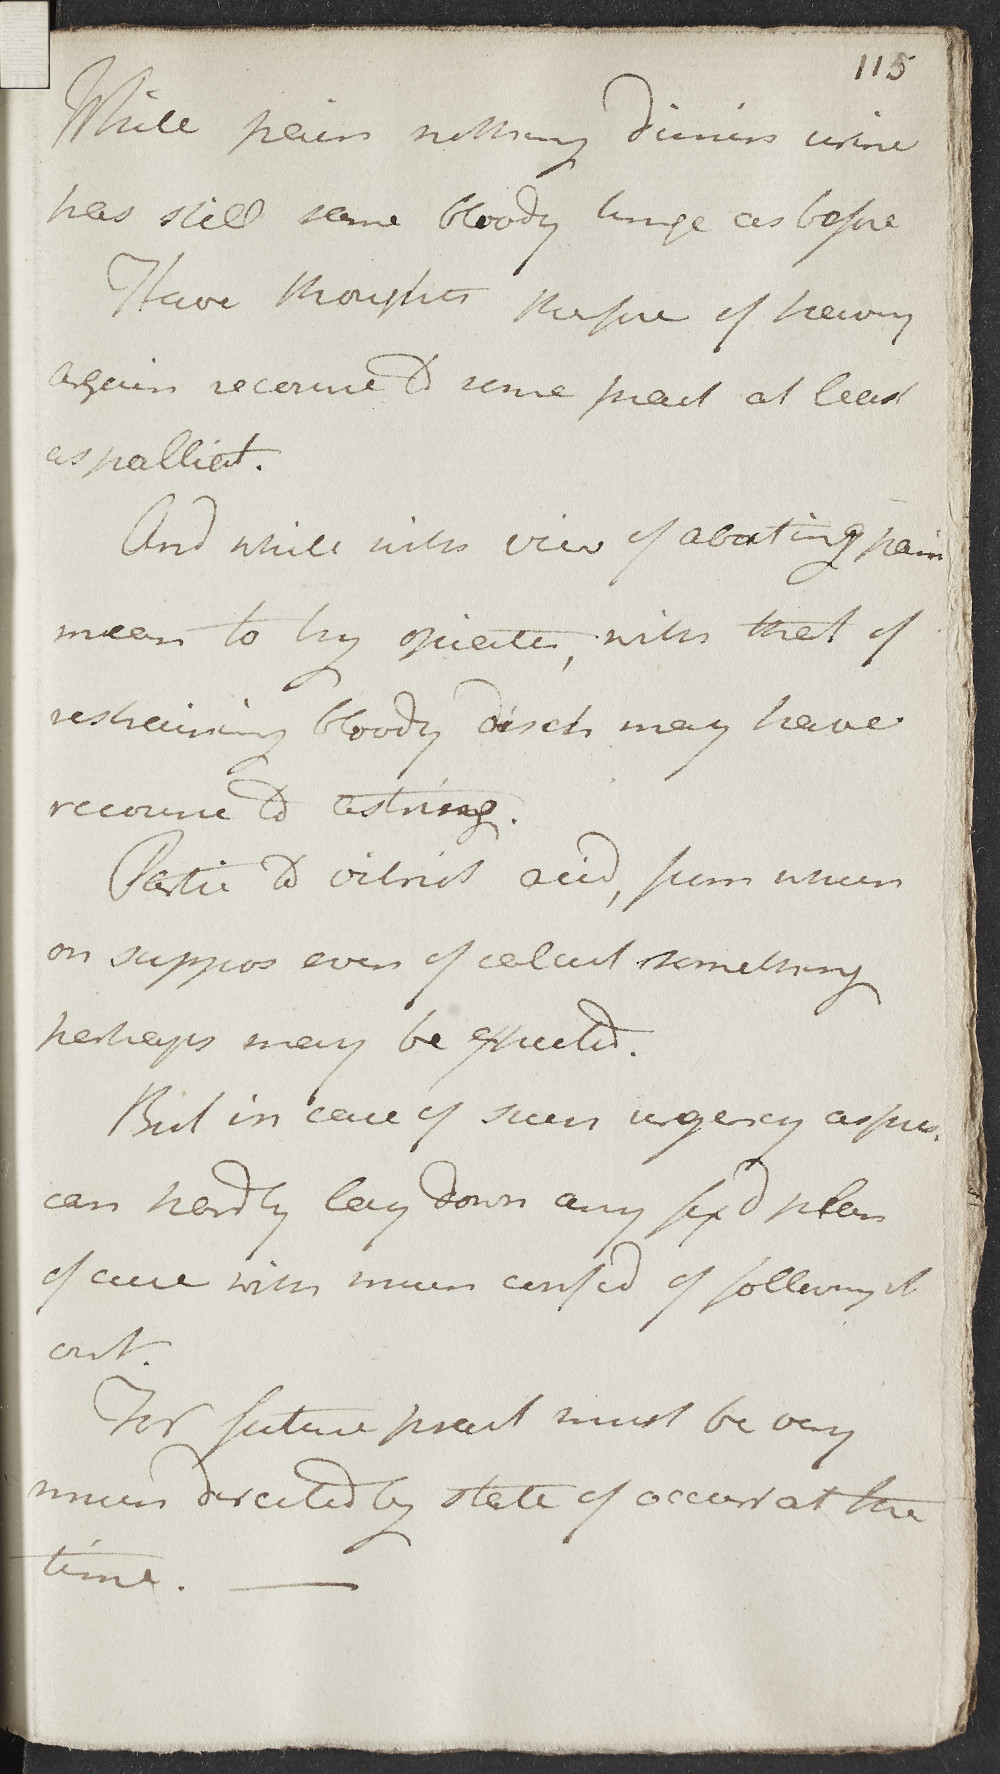 115
While pain nothing dimin urine
has still same bloody tinge as before
Have thoughts therfore of having
again recourse to some pract at least
as palliat.
And while with view of abating pain
mean to try opiates, with that of
restraining bloody disch may have
recourse to astring.
Partic to vitriol acid, from which
on suppos even of calcul something
perhaps may be expected.
But in case of such urgency as pres.
can hardly lay down any fix'd plan
of cure with much confid of following it
out.
For future pract must be very
much directed by state of occurr at the
time. —